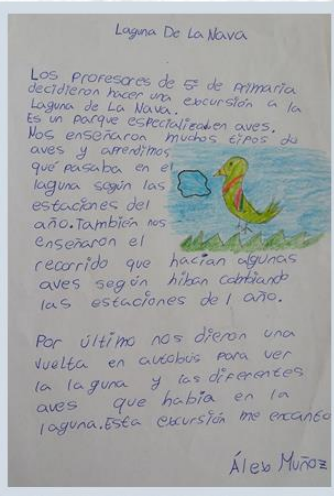 Laguna De La Nava
Los profesores de 5º de primaria
decidieron hacer una excursión a la
Laguna de La Nava.
Es un parque especializado en aves.
Nos enseñaron muchos tipos de
aves y aprendimos
qué pasaba en el
laguna según las
estaciones del
año. También nos
enseñaron el
recorrido que hacían algunas
aves según hiban cambiando
las estaciones del año.
Por último nos dieron una
vuelta en autobús para ver
la laguna y las diferentes
aves que había en la
laguna. Esta excursión me encanto
Muñoz